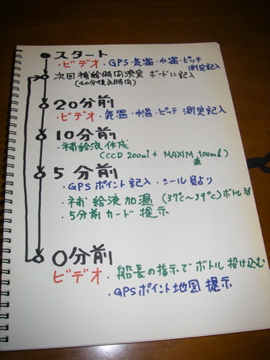 スタート
・ビデオ・GPS・気温・水温・ピッチ 測定記入
次回補給時間決定 ボードに記入
20分前
・ビデオ・気温・水温・ピッチ 測定記入
10分前
・補給液作成
(CCD 200ml + MAXIM 100ml)
5分前
・GPSポイント記入・シール見より
・補給液加温 (37℃〜39℃) ボトル
・5分前カード 提示
0分前
ビデオ ・船長の指示でボトル投げ込む
・GPSポイント地図 提示